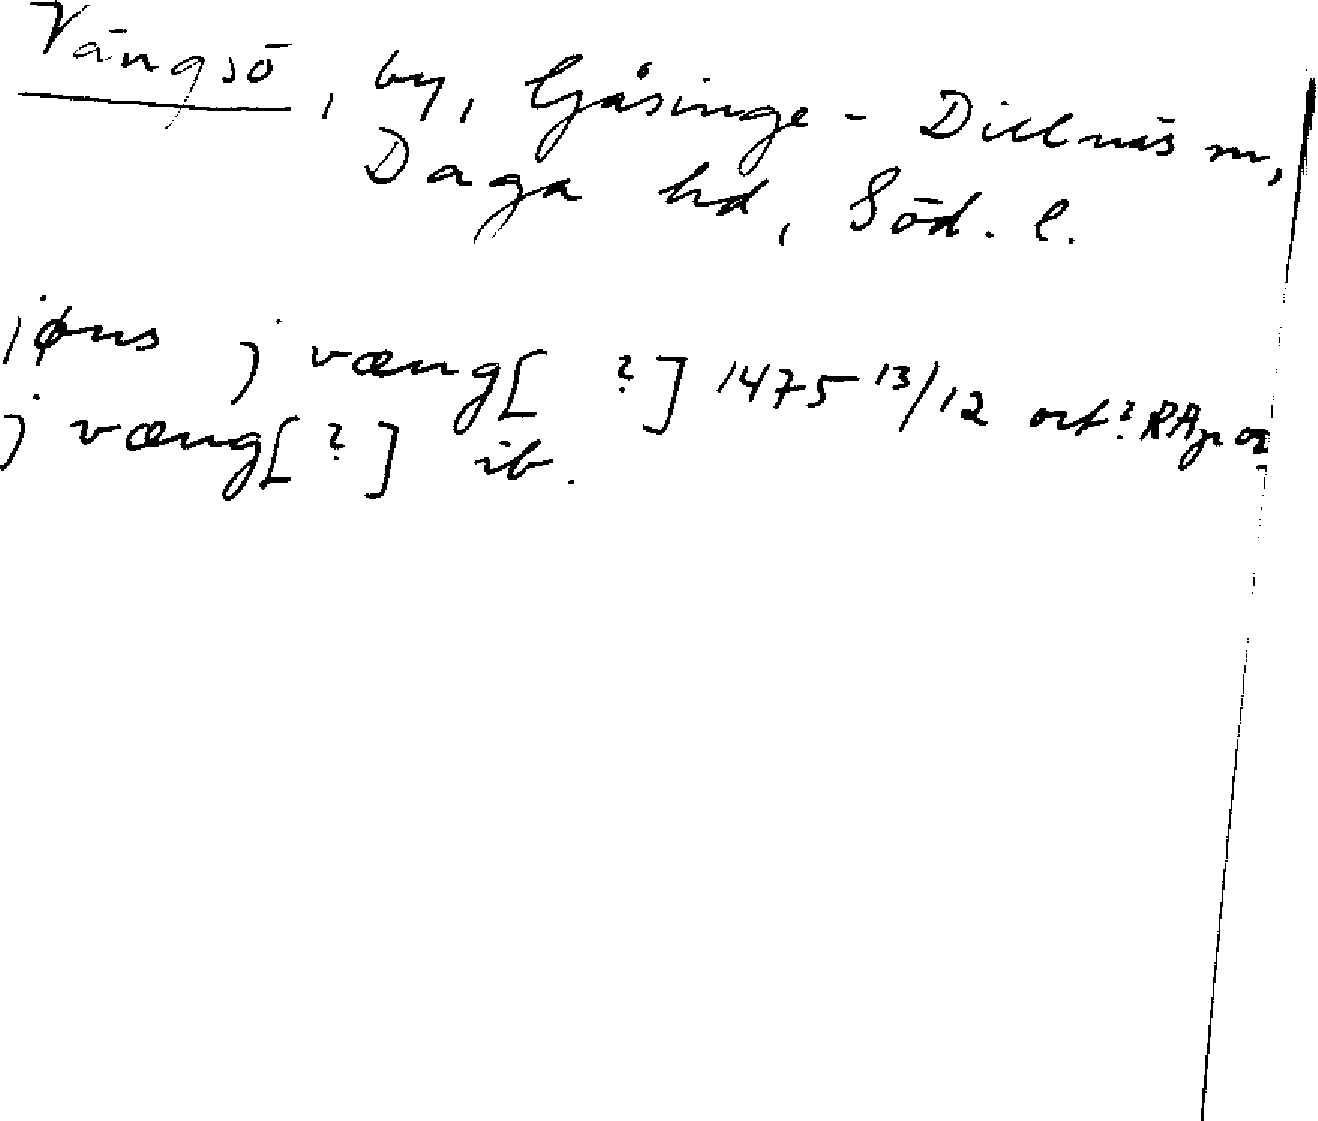 Vängsö, by, Gåsinge-Dillnäs sn,
Daga hd, Söd. l.
jøns j væng[ ?] 1475 13/12 ort? RAp or
j væng[?] ib.